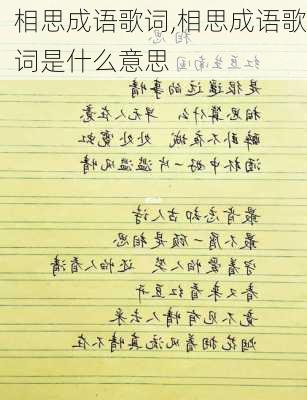 相思成语歌词,相思成语歌
词是什么意思
相思
红豆生南国
是很遥远的事情
相思算什么 早无人在意
醉卧不夜城 处处霓虹
酒杯中好一片滥滥风情
最肯忘却古人诗
最不屑一顾是相思
守着爱怕人笑 还怕人看清
春又来看红豆开
竟不见有情人去采
烟花拥着风流真情不在